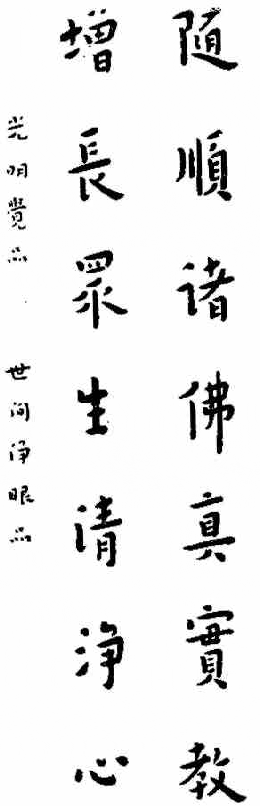 随順諸佛真實教
增長眾生清淨心
光明覺品 世间淨眼品